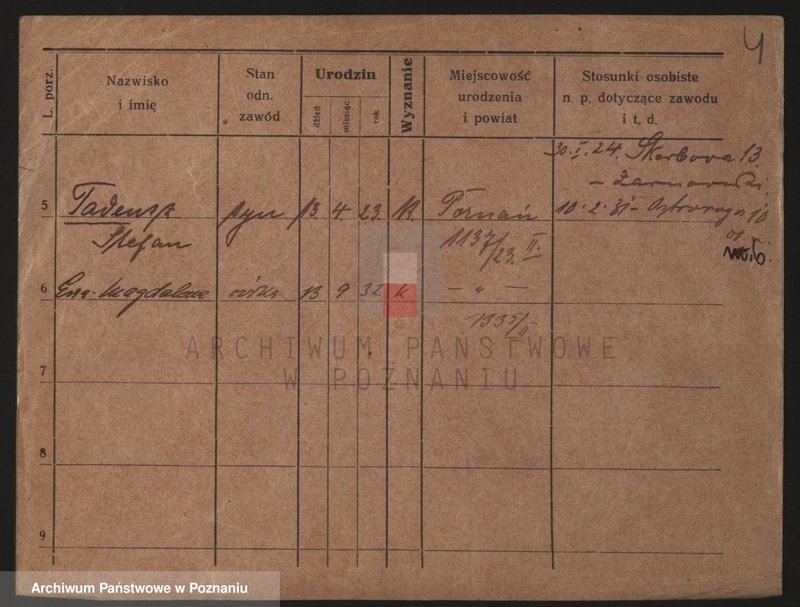 4
L. porz.
Nazwisko
i imię
Stan
odn.
zawód
Urodzin
dzień
miesiąc
rok
Wyznanie
Miejscowość
urodzenia
i powiat
Stosunki osobiste
n. p. dotyczące zawodu
i t. d.
30.I.24. Skarbowa 13
5 Tadeusz syn 13 4 23 K. Poznań 10.2.31 -
Stefan 1137/23. II.
6 Ewa-Magdalena córka 13 9 32 K — „ —
1335/II
ARCHIWUM PAŃSTWOWE
W POZNANIU
7
8
9
Archiwum Państwowe w Poznaniu